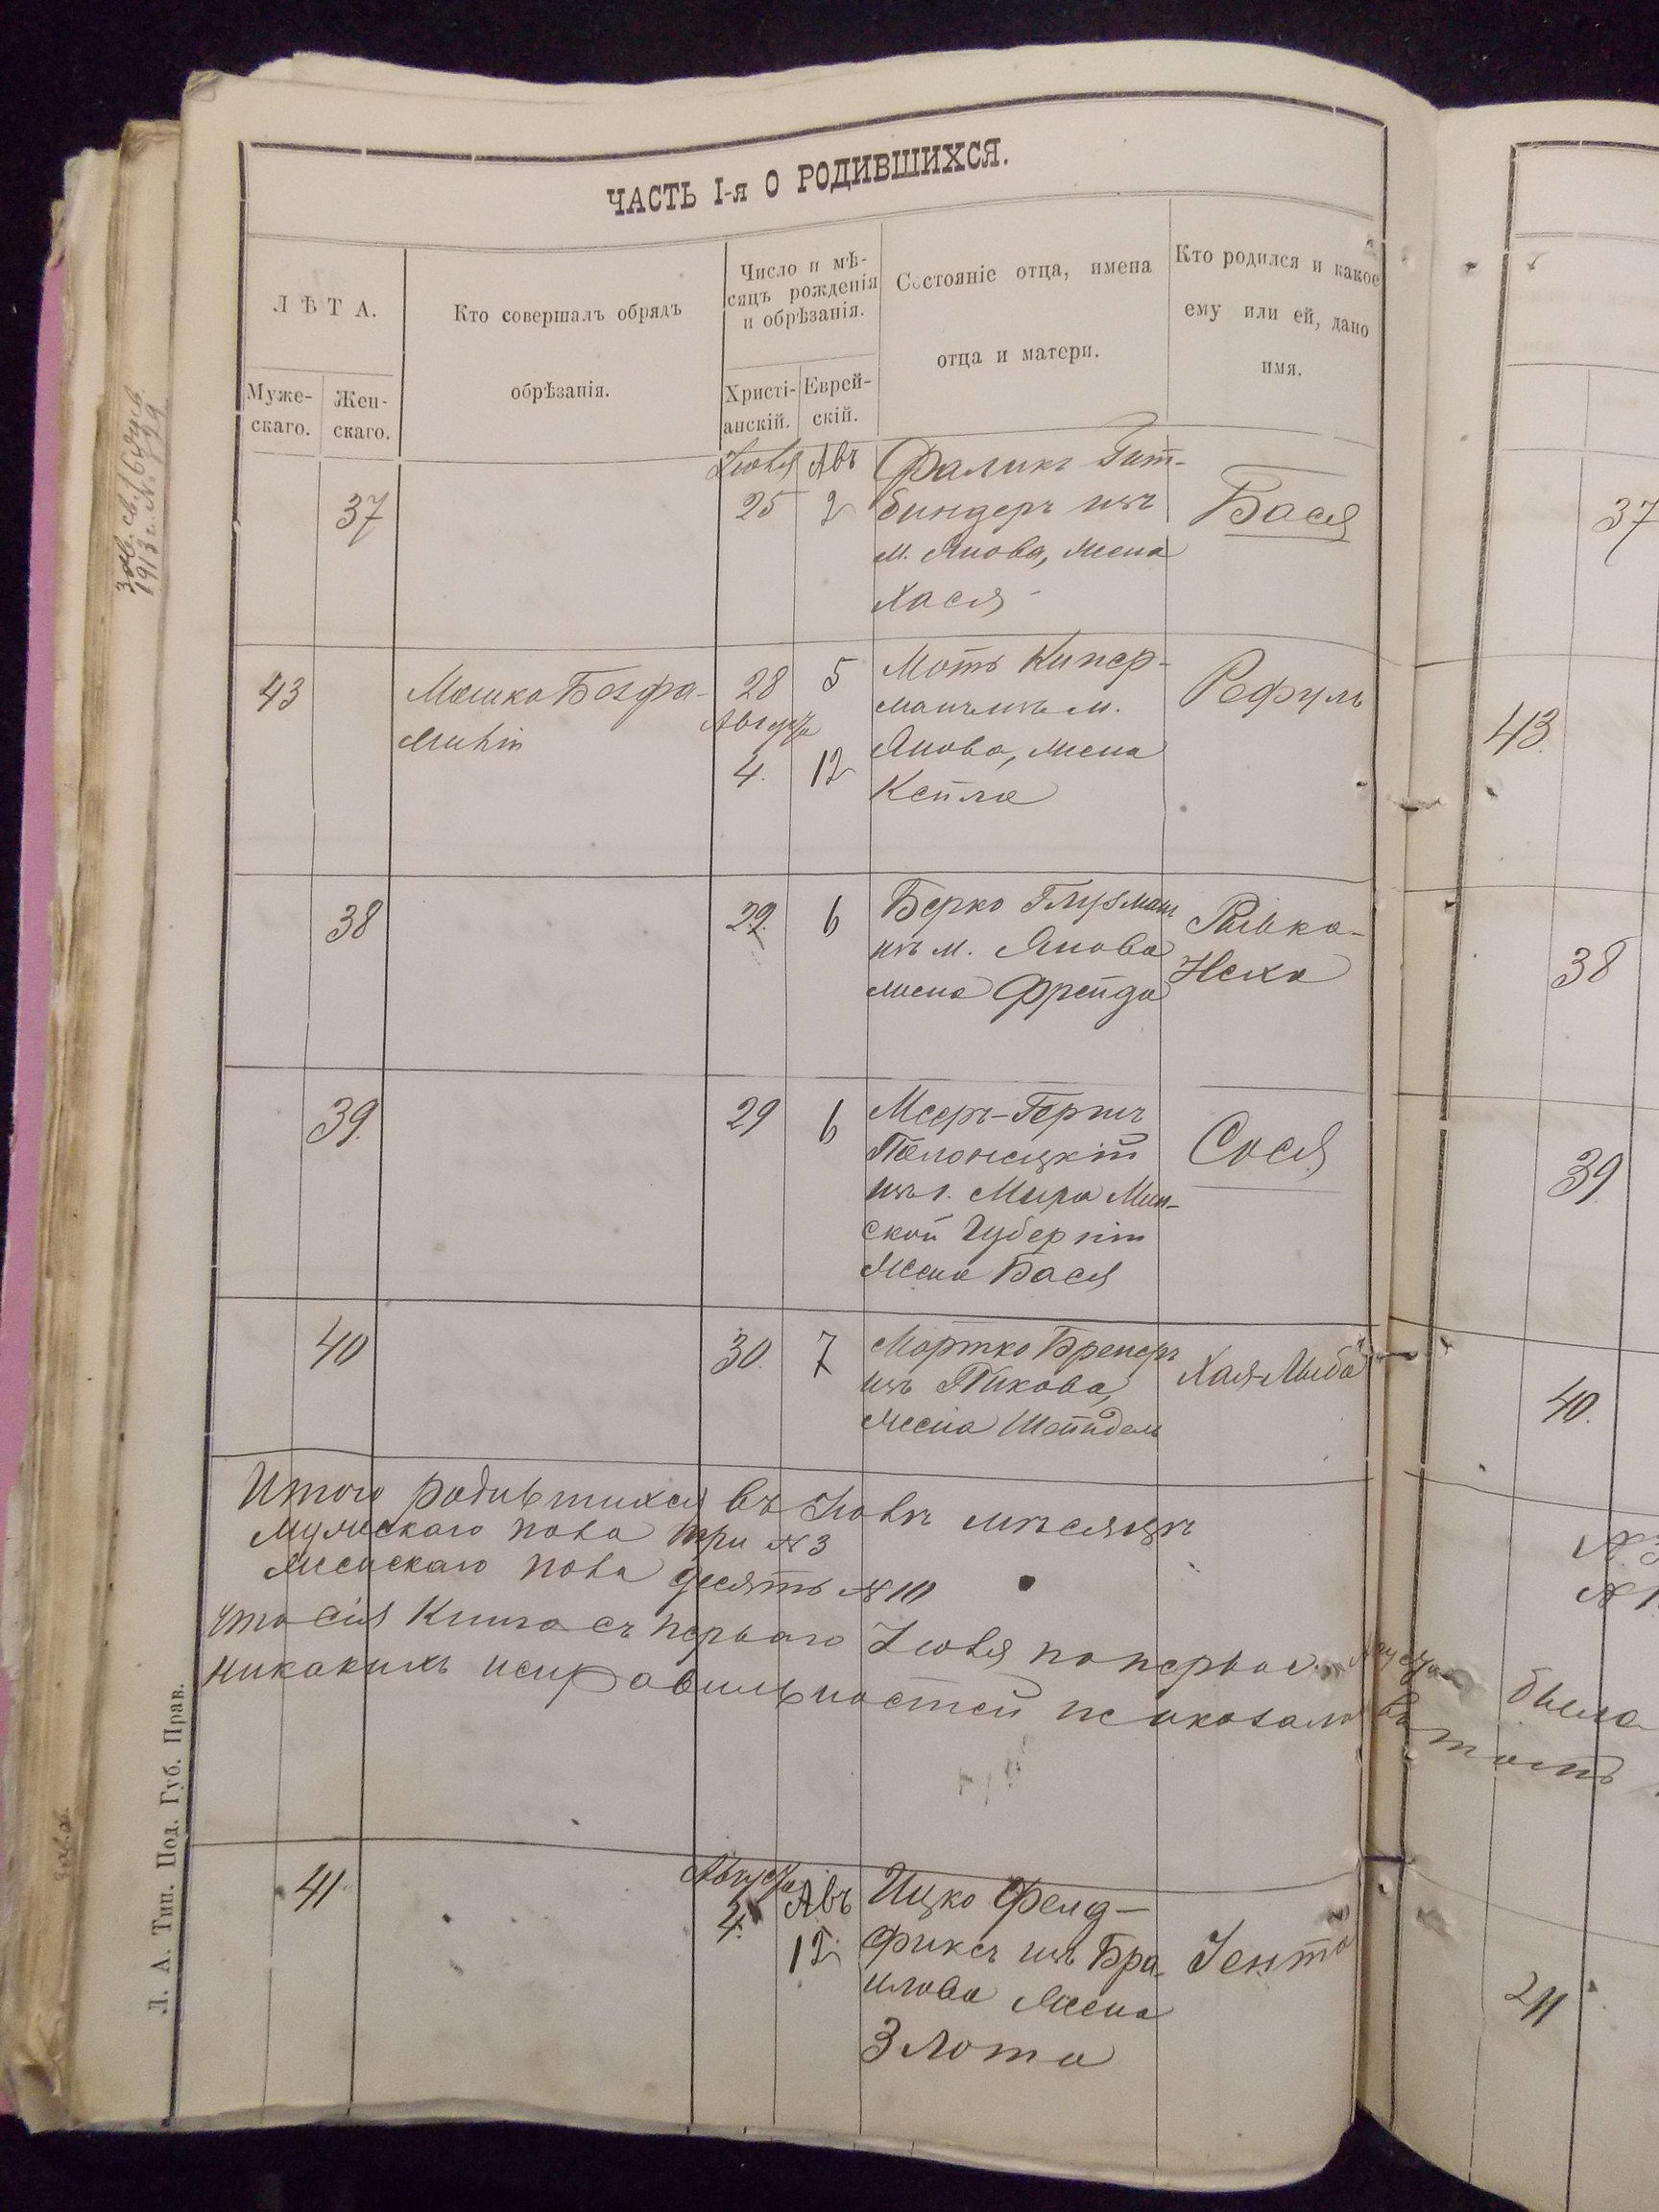 ЧАСТЬ I-я О РОДИВШИХСЯ.
ЛѢТА.
Муже-
скаго.
Жен-
скаго.
Кто совершалъ обрядъ
обрѣзанія.
Число и мѣ-
сяцъ рожденія
и обрѣзанія.
Христі-
анскій.
Еврей-
скій.
Состояніе отца, имена
отца и матери.
Кто родился и какое
ему или ей, дано
имя.
37
Іюля
25
Авъ
2
Фаликъ Гит-
биндеръ изъ
м. Янова, жена
Хася
Бася
37
43
Мошко
28
Августа
4.
5
12
Мотъ Кипер-
манъ изъ м.
Янова, жена
Кейла
Рефуль
43.
38
29.
6
Берко Глузман
изъ м. Янова
жена Фрейда
Рывка-
Неха
38
39.
29
6
Мееръ-Гершъ
Полонецкій
изъ г. Мира Мин-
ской Губерніи
жена Бася
Сося
39.
40
30.
7
Мортко Бренеръ
изъ Пикова,
жена Шейндель
Хая-Лыба
40.
Итого родившихся въ Іюлѣ мѣсяцѣ
Мужескаго пола три № 3
Женскаго пола десять № 10
Что сія Книга съ перваго Іюля по первое Августа была
никакихъ неправильностей не оказалось въ томъ
41
Августа
4.
Авъ
12
Ицко Фелд-
фиксъ изъ Бра-
илова жена
Злота
Іента
Л. А. Тип. Под. Губ. Прав.